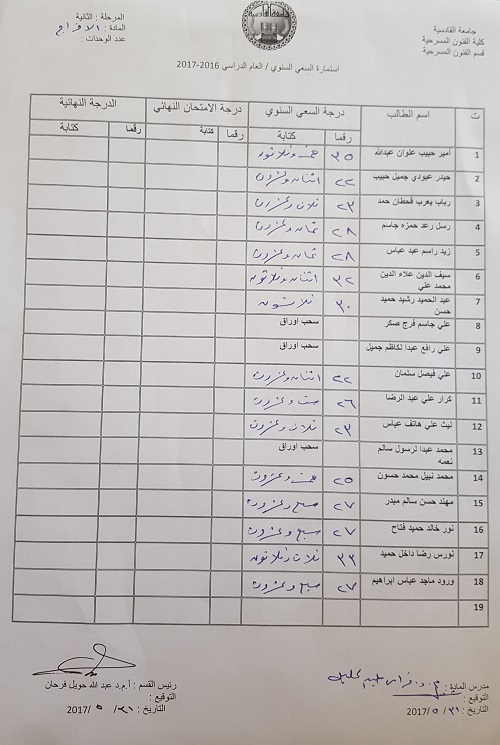 جامعة القادسية
كلية الفنون المسرحية
قسم الفنون المسرحية
المرحلة : الثانية
المادة : الاخراج
عدد الوحدات :
استمارة السعي السنوي / العام الدراسي 2016-2017
ت اسم الطالب درجة السعي السنوي درجة الامتحان النهائي الدرجة النهائية
رقما كتابة رقما كتابة رقما كتابة
1 امير حبيب علوان عبدالله ٣٥ خمسة وثلاثون
2 حيدر عبودي جميل حبيب ٢٢ اثنان وعشرون
3 رباب يعرب قحطان حمد ٢٣ ثلاث وعشرون
4 رسل رعد حمزه جاسم ٢٨ ثمان وعشرون
5 زيد راسم عبد عباس ٢٨ ثمان وعشرون
6 سيف الدين علاء الدين محمد علي ٣٢ اثنان وثلاثون
7 عبد الحميد رشيد حميد حسن ٣٠ ثلاثون
8 علي جاسم فرج صكر سحب اوراق
9 علي رافع عبدا لكاظم جميل سحب اوراق
10 علي فيصل سلمان ٢٢ اثنان وعشرون
11 كرار علي عبد الرضا ٢٦ ست وعشرون
12 ليث علي هاتف عباس ٢٣ ثلاث وعشرون
13 محمد عبدا لرسول سالم نعمه سحب اوراق
14 محمد نبيل محمد حسون ٢٥ خمس وعشرون
15 مهند حسن سالم ميدر ٢٧ سبع وعشرون
16 نور خالد حميد فتاح ٢٧ سبع وعشرون
17 نورس رضا داخل حميد ٣٣ ثلاث وثلاثون
18 ورود ماجد عباس ابراهيم ٢٧ سبع وعشرون
19
مدرس المادة :
التوقيع :
التاريخ : ٣١/ ٥ /2017
رئيس القسم : أ.م.د عبد الله حويل فرحان
التوقيع :
التاريخ : ٣١/ ٥ /2017